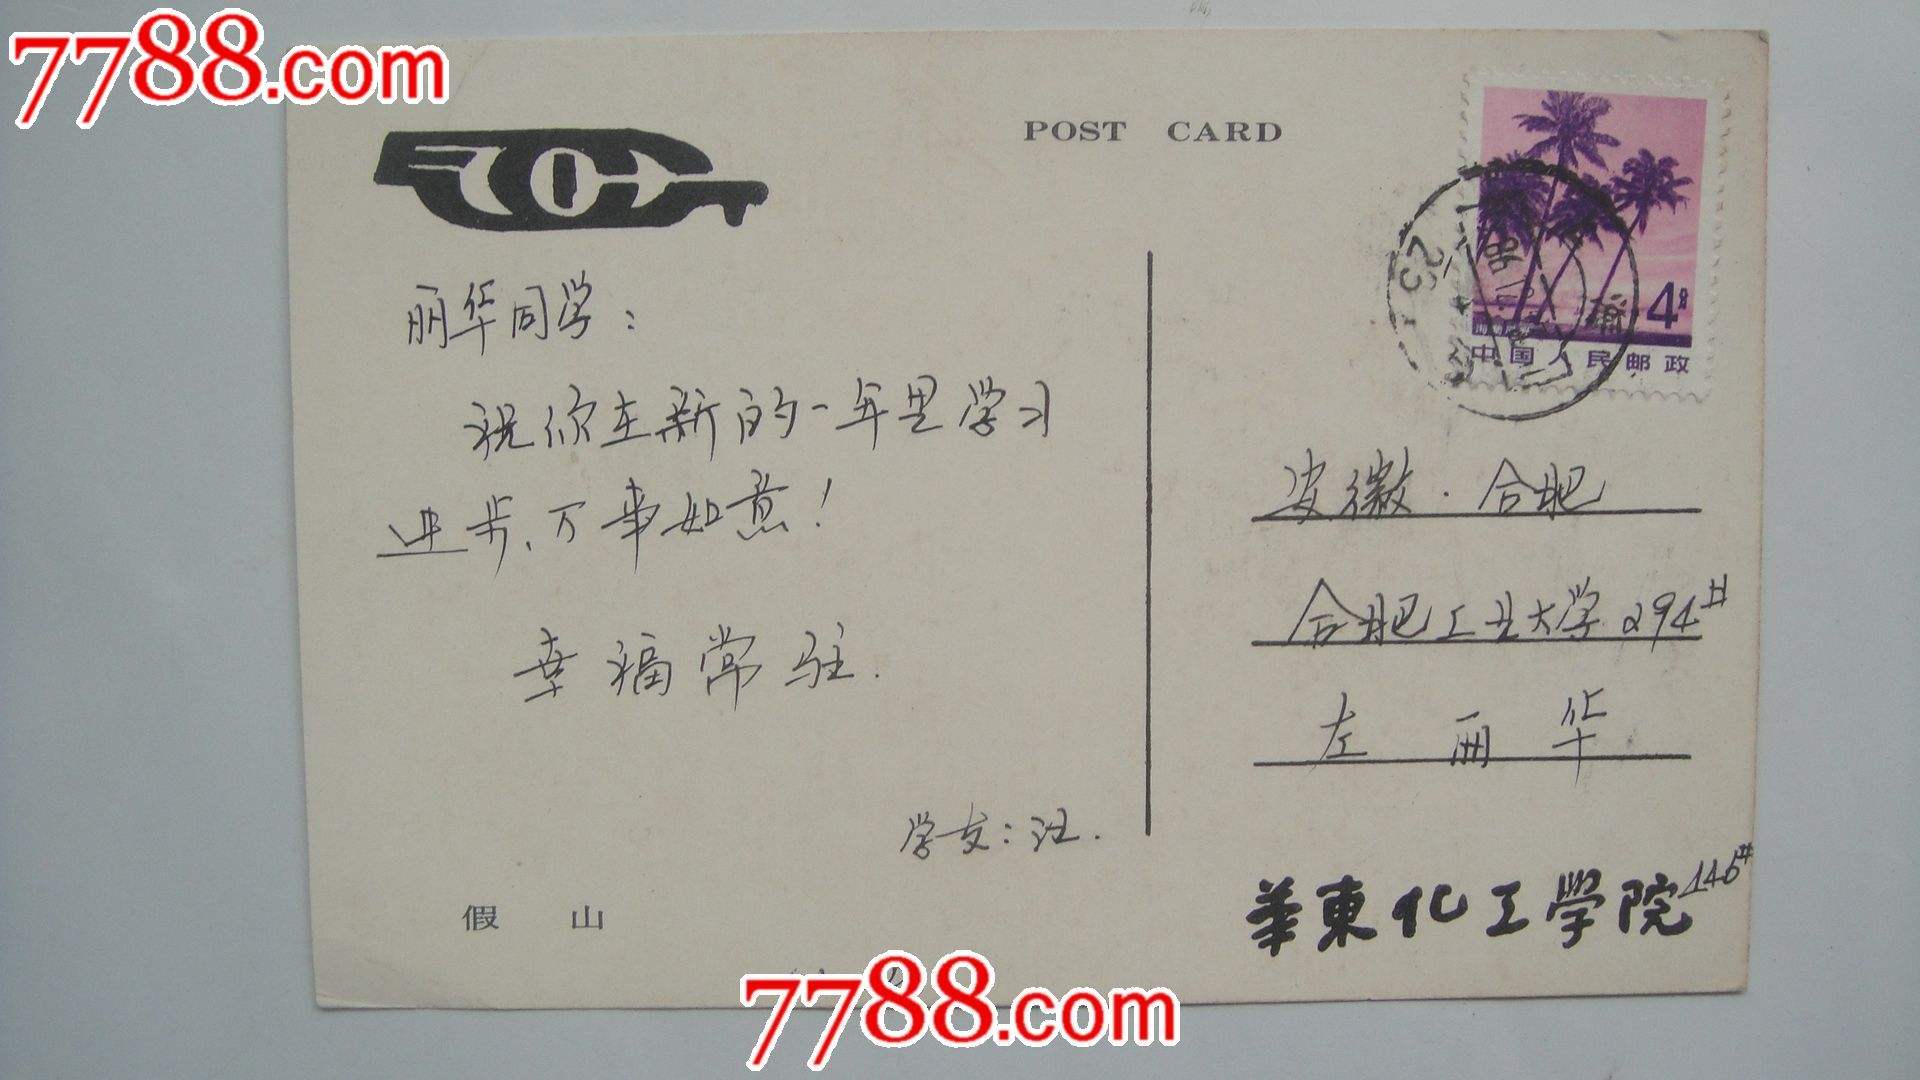 7788.com
POST CARD
4分
中国人民邮政
丽华同学：
祝你在新的一年里学习
进步、万事如意！
幸福常驻.
学友：汪.
假山
安徽·合肥
合肥工业大学294#
左丽华
華東化工學院146#
7788.com